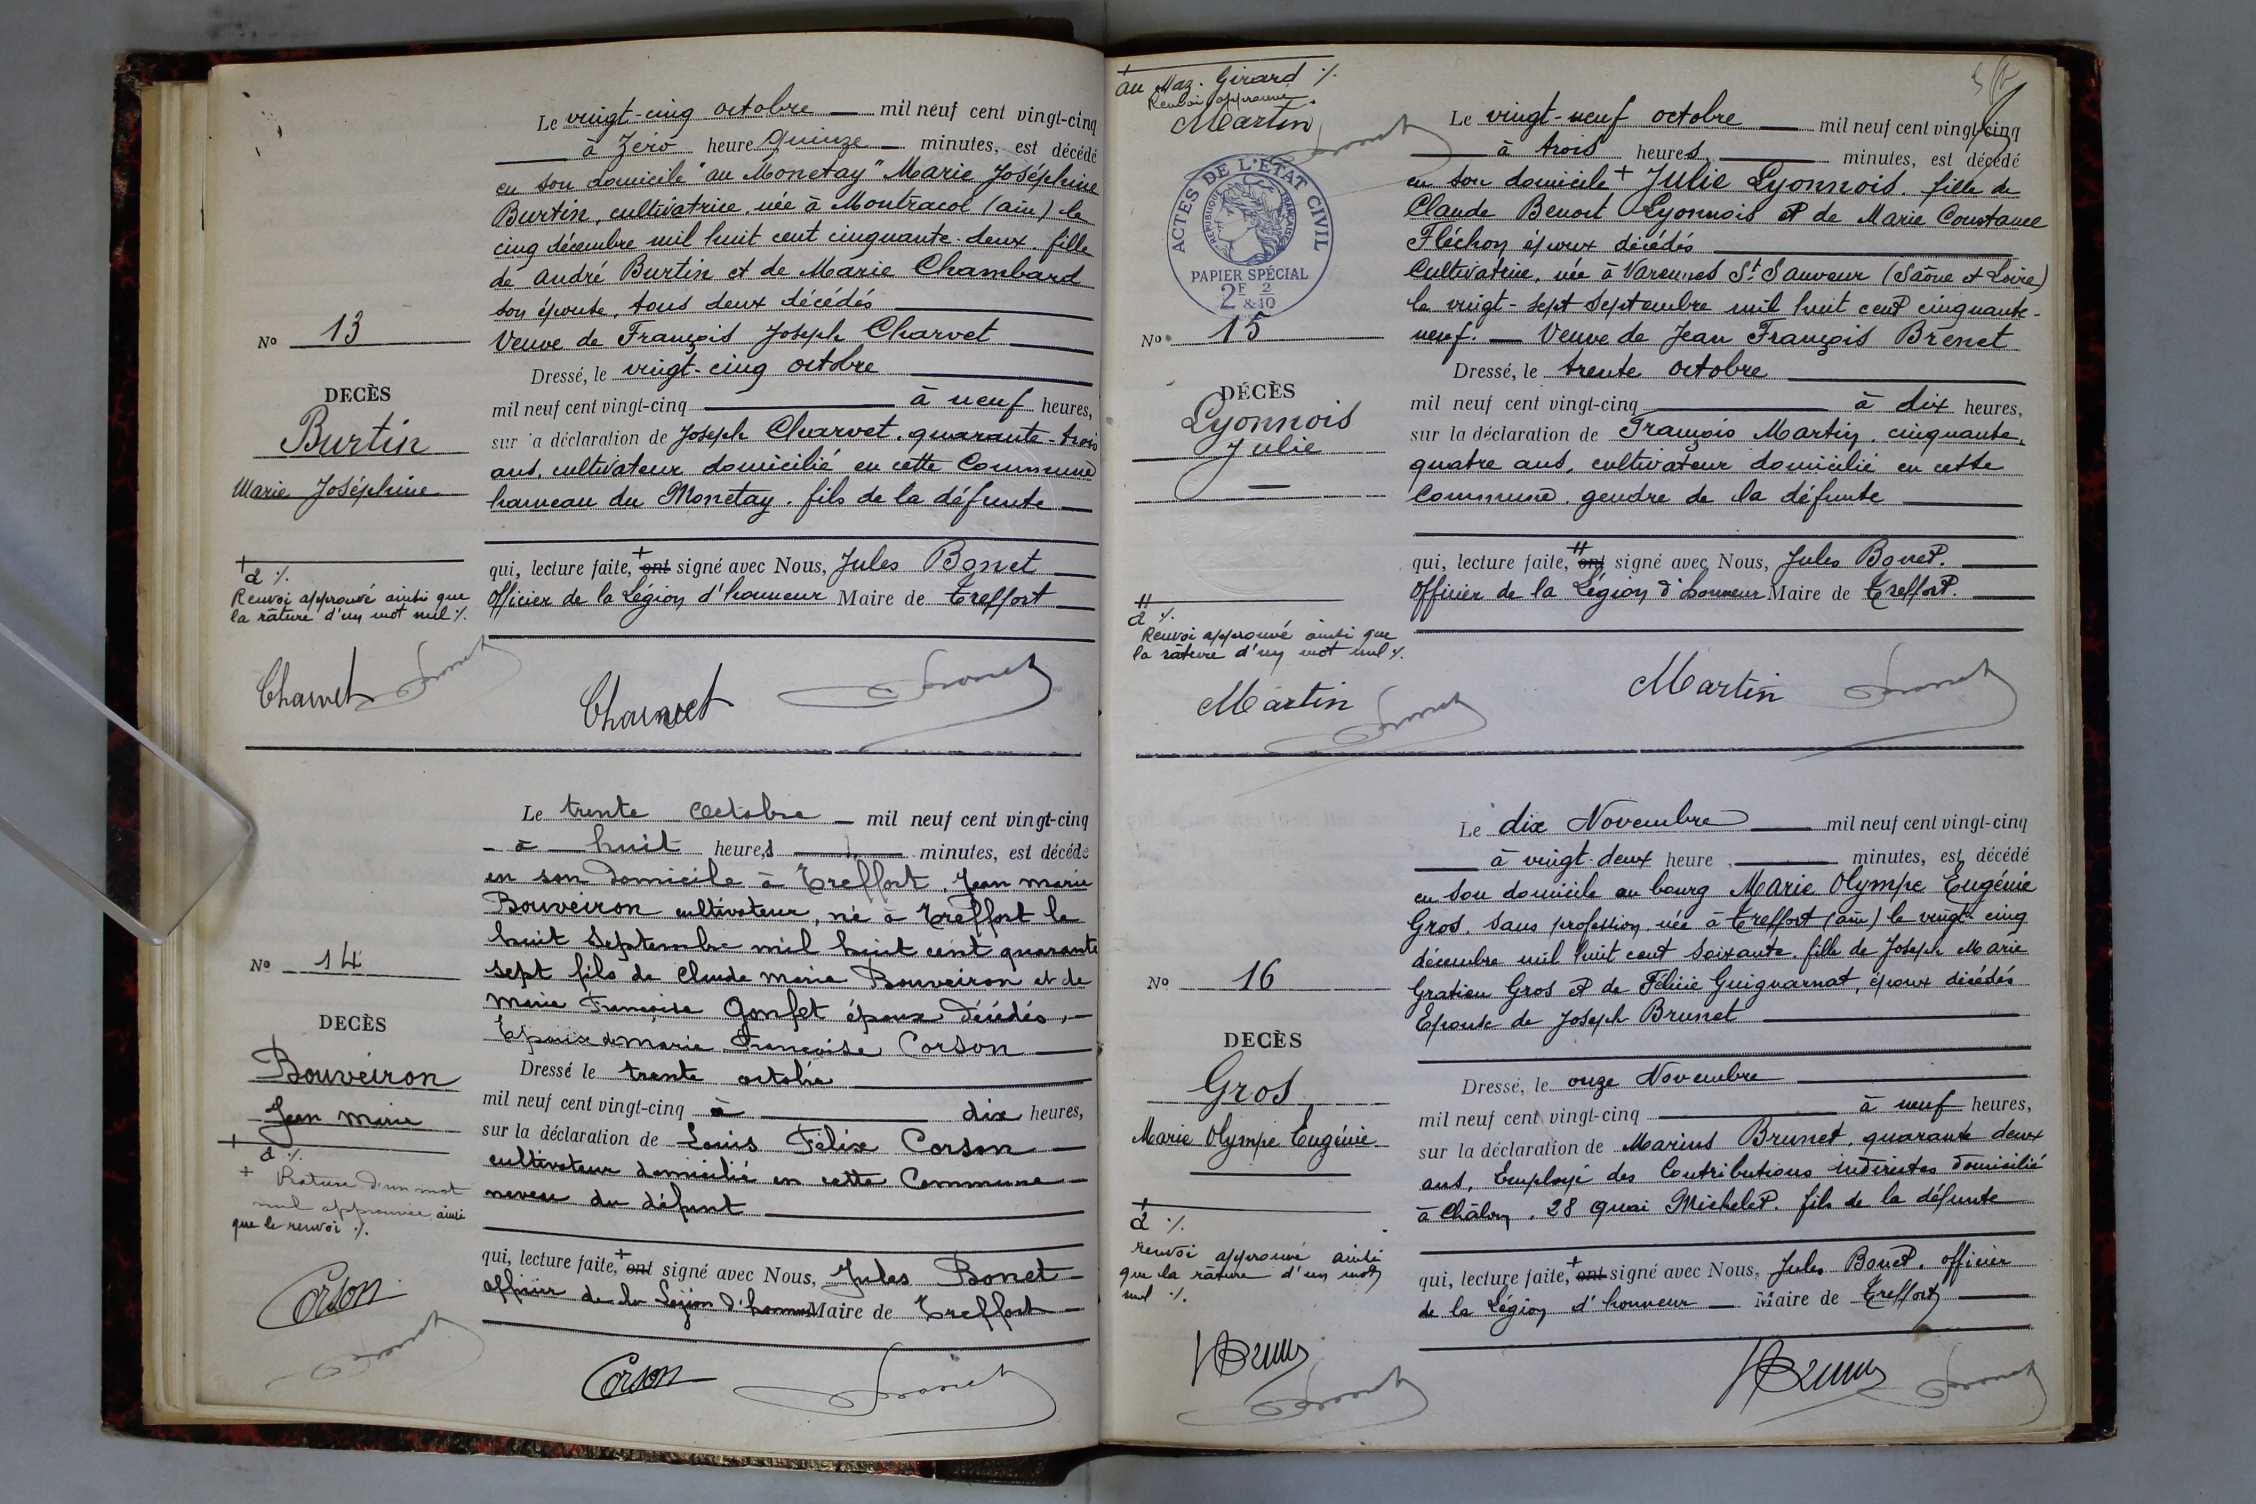 Le vingt-cinq octobre — mil neuf cent vingt-cinq
à Zéro heure quinze — minutes, est décédé
en son domicile "au Monetay" Marie Joséphine
Burtin, cultivatrice, née à Montracol (ain) le
cinq décembre mil huit cent cinquante-deux. fille
de André Burtin et de Marie Chambard
son épouse, tous deux décédés
Veuve de François Joseph Charvet
Dressé, le vingt-cinq octobre
mil neuf cent vingt-cinq à neuf heures,
sur la déclaration de Joseph Charvet, quarante-trois
ans, cultivateur domicilié en cette Commune
hameau du Monetay. fils de la défunte
qui, lecture faite, + ont signé avec Nous, Jules Bonet
Officier de la Légion d'honneur Maire de Treffort
No 13
DECÈS
Burtin
Marie Joséphine
+
a ./.
Renvoi approuvé ainsi que
la râture d'un mot nul ./.
Charvet
Bonet
Charvet
Bonet
Le trente octobre — mil neuf cent vingt-cinq
- à — huit heures — minutes, est décédé
en son domicile à Treffort, Jean marie
Bouveiron cultivateur, né à Treffort le
huit Septembre mil huit cent quarante
sept fils de Claude marie Bouveiron et de
marie Françoise Gonfet époux décédés, —
Epoux de marie Françoise Corson
Dressé le trente octobre
mil neuf cent vingt-cinq à dix heures,
sur la déclaration de Louis Félix Corson
cultivateur domicilié en cette Commune
neveu du défunt
qui, lecture faite, + ont signé avec Nous, Jules Bonet
officier de la Légion d'honneur Maire de Treffort
No 14
DECÈS
Bouveiron
Jean marie
+
a ./.
+ Rature d'un mot
nul approuvée ainsi
que le renvoi ./.
Corson
Bonet
Corson
Bonet
+
au Maz. Girard ./.
Renvoi approuvé.
Martin
Bonet
ACTES DE L'ÉTAT CIVIL
RÉPUBLIQUE FRANÇAISE
PAPIER SPÉCIAL
2F 2/10
&
Le vingt-neuf octobre — mil neuf cent vingt-cinq
à trois heures, — minutes, est décédé
en son domicile + Julie Lyonnois. fille de
Claude Benoit Lyonnois et de Marie Constance
Fléchon époux décédés
Cultivatrice, née à Varennes St Sauveur (Saône et Loire)
le vingt-sept septembre mil huit cent cinquante-
neuf. — Veuve de Jean François Brenet
Dressé, le trente octobre
mil neuf cent vingt-cinq à dix heures,
sur la déclaration de François Martin, cinquante-
quatre ans, cultivateur domicilié en cette
commune, gendre de la défunte
qui, lecture faite, # ont signé avec Nous, Jules Bonet.
Officier de la Légion d'honneur Maire de Treffort.
No 15
DÉCÈS
Lyonnois
Julie
—
#
a ./.
Renvoi approuvé ainsi que
la râture d'un mot nul ./.
Martin
Bonet
Martin
Bonet
Le dix Novembre — mil neuf cent vingt-cinq
à vingt-deux heure, — minutes, est décédé
en son domicile au bourg Marie Olympe Eugénie
Gros, sans profession, née à Treffort (ain) le vingt-cinq
décembre mil huit cent soixante. fille de Joseph Marie
Gratien Gros et de Félicie Guignarnat, époux décédés
Epouse de Joseph Brunet
Dressé, le onze Novembre
mil neuf cent vingt-cinq à neuf heures,
sur la déclaration de Marius Brunet, quarante deux
ans, Employé des Contributions indirectes domicilié
à Châlon, 28 quai Michelet. fils de la défunte
qui, lecture faite, + ont signé avec Nous, Jules Bonet, officier
de la Légion d'honneur — Maire de Treffort
No 16
DECÈS
Gros
Marie Olympe Eugénie
+
a ./.
renvoi approuvé ainsi
que la râture d'un mot
nul ./.
Bonet
Bonet